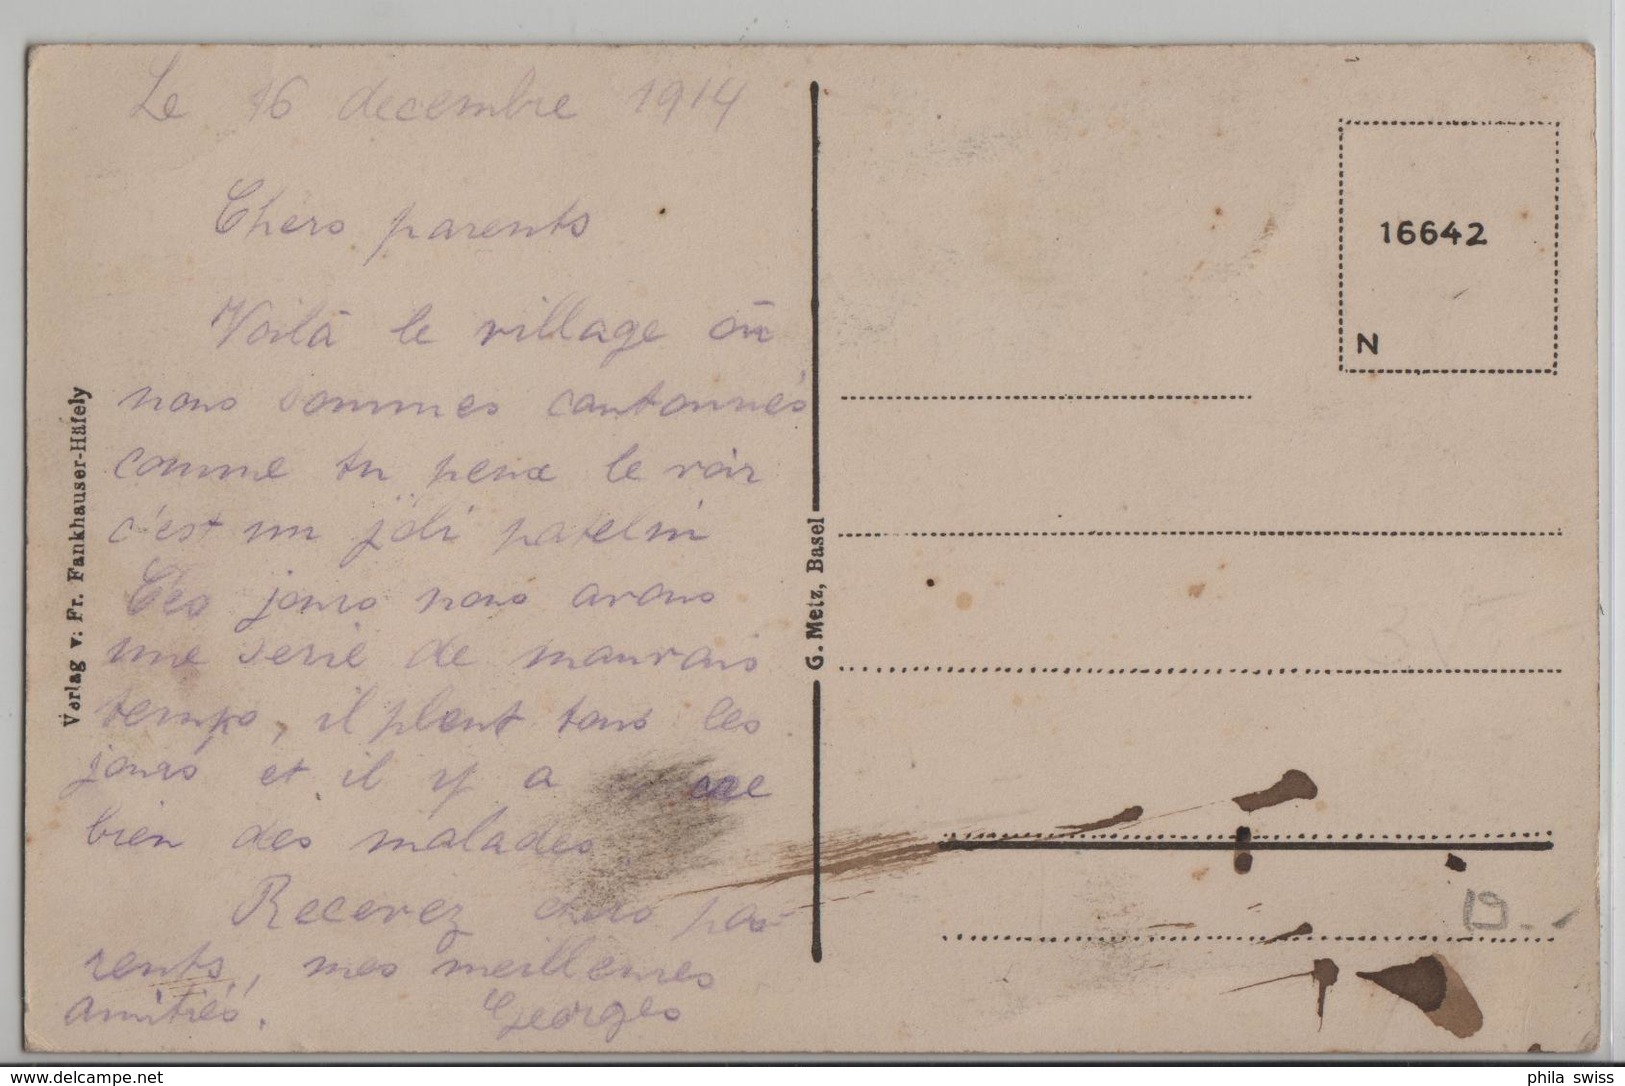 Le 16 decembre 1914
Chers parents
Voilà le village où
nous sommes cantonnés
comme tu peux le voir
c'est un joli patelin
Ces jours nous avons
une serie de mauvais
temps, il pleut tous les
jours et il y a
bien des malades
Recevez chers pa-
rents, mes meilleures
amitiés. Georges
Verlag v. Fr. Fankhauser-Häfely
G. Metz, Basel
16642
N
19.-
phila swiss
www.delcampe.net